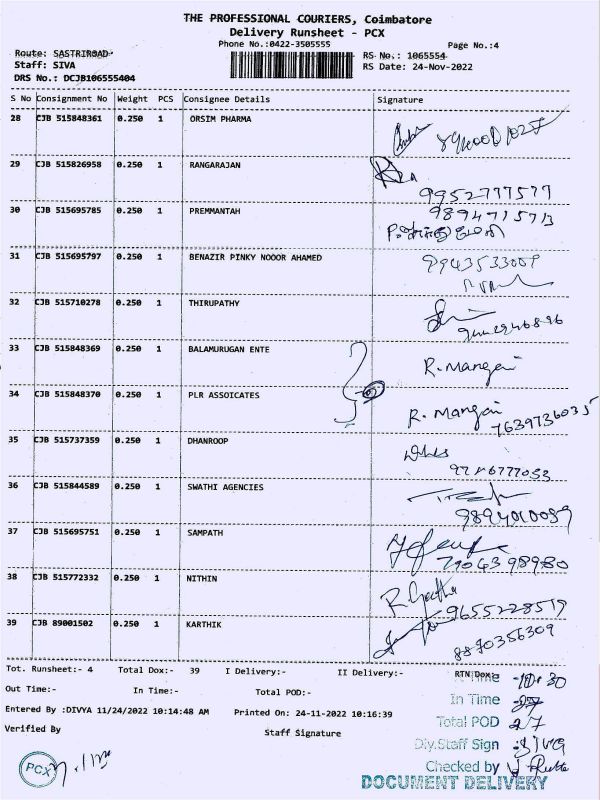 THE PROFESSIONAL COURIERS, Coimbatore
Delivery Runsheet - PCX
Phone No.:0422-3505555
Page No.:4
Route: SASTRIROAD
RS No.: 1065554
Staff: SIVA
RS Date: 24-Nov-2022
DRS No.: DCJB106555404
S No Consignment No Weight PCS Consignee Details Signature
28 CJB 515848361 0.250 1 ORSIM PHARMA
29 CJB 515826958 0.250 1 RANGARAJAN
9952777577
30 CJB 515695785 0.250 1 PREMMANTAH
9894715713
31 CJB 515695797 0.250 1 BENAZIR PINKY NOOOR AHAMED 9943533009
32 CJB 515710278 0.250 1 THIRUPATHY
33 CJB 515848369 0.250 1 BALAMURUGAN ENTE R. Mangai
34 CJB 515848370 0.250 1 PLR ASSOICATES R. Mangai
7639736035
35 CJB 515737359 0.250 1 DHANROOP
36 CJB 515844589 0.250 1 SWATHI AGENCIES
37 CJB 515695751 0.250 1 SAMPATH
38 CJB 515772332 0.250 1 NITHIN R. Geetha
9655228519
39 CJB 89001502 0.250 1 KARTHIK
8870356309
Tot. Runsheet:- 4 Total Dox:- 39 I Delivery:- II Delivery:- RTN Dox:-
Out Time:- In Time:- Total POD:-
In Time
Entered By :DIVYA 11/24/2022 10:14:48 AM Printed On: 24-11-2022 10:16:39
Total POD 27
Verified By Staff Signature
Dly.Staff Sign SIVA
Checked by
PCX
DOCUMENT DELIVERY